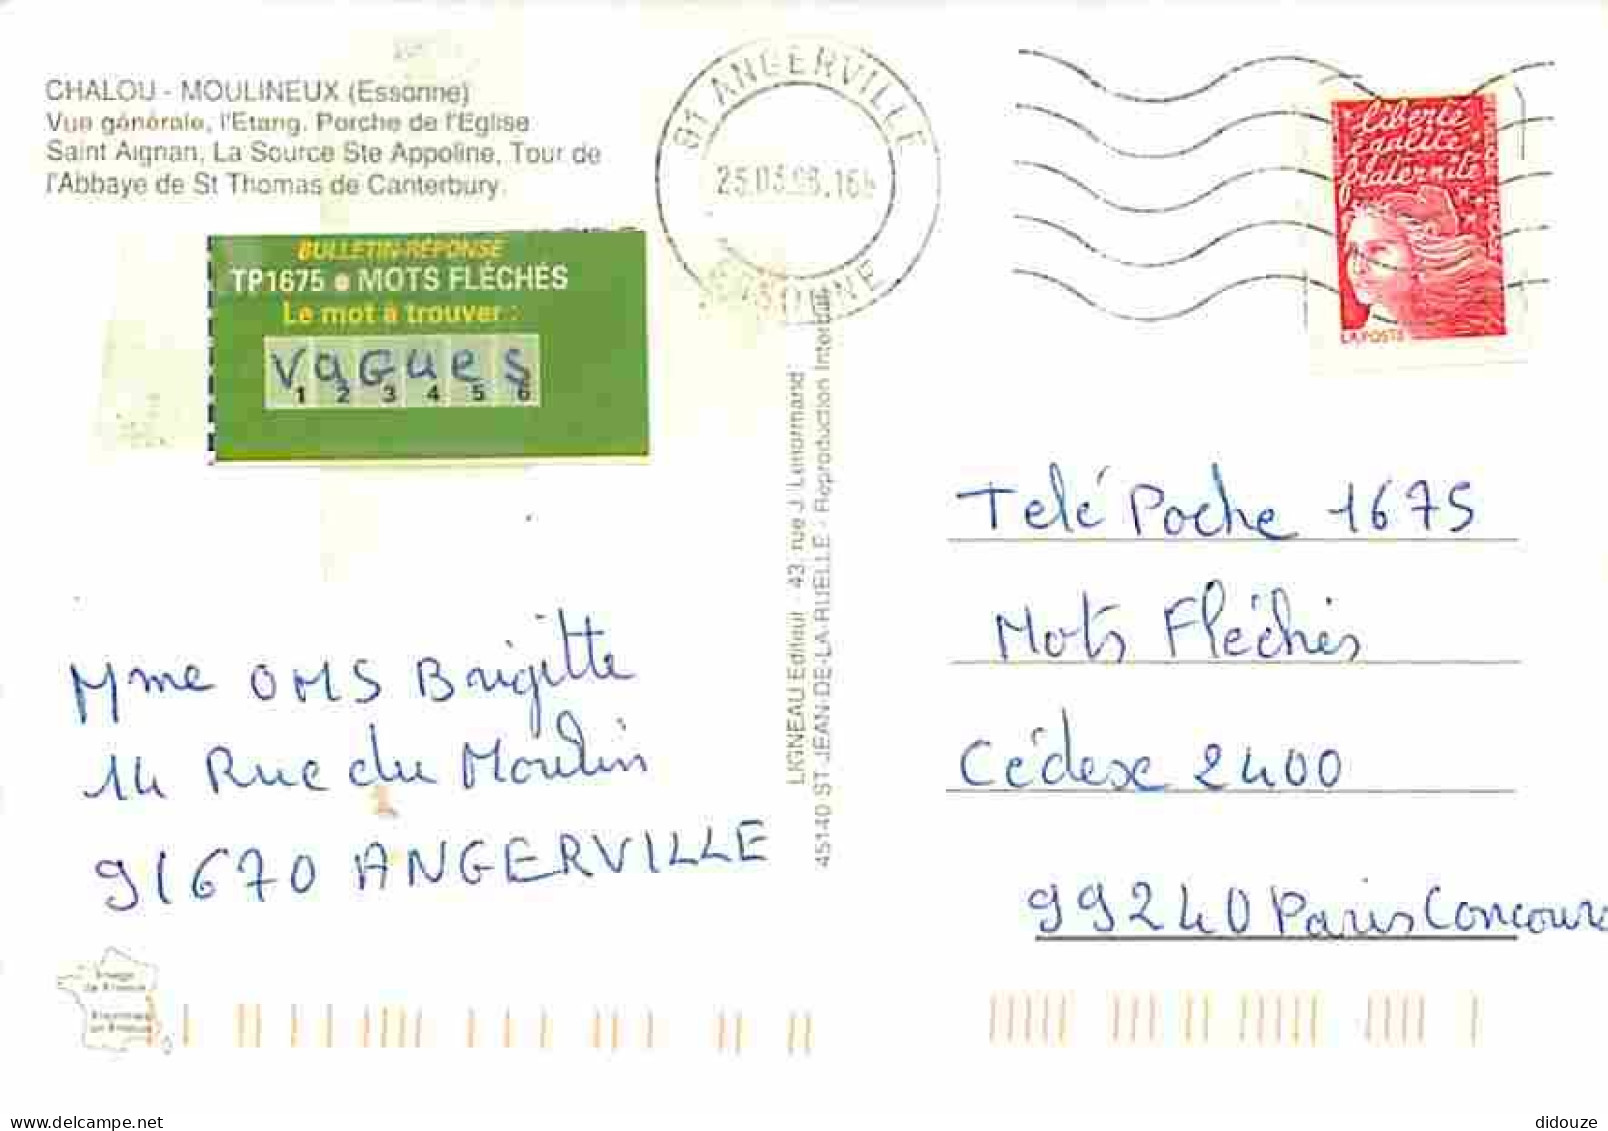 CHALOU - MOULINEUX (Essonne)
Vue générale, l'Etang, Porche de l'Eglise
Saint Aignan, La Source Ste Appoline, Tour de
l'Abbaye de St Thomas de Canterbury.
BULLETIN-RÉPONSE
TP1675 • MOTS FLÉCHÉS
Le mot à trouver :
VAGUES
1 2 3 4 5 6
91 ANGERVILLE
ESSONNE
liberté
égalité
fraternité
LA POSTE
LIGNEAU Editeur - 43, rue J. Lenormand
45140 ST-JEAN-DE-LA-RUELLE - Reproduction Interdite
Mme OMS Brigitte
14 Rue du Moulin
91670 ANGERVILLE
Telé Poche 1675
Mots Fléchés
Cédex 2400
99240 Paris Concours
Image
de France
didouze
delcampe.net